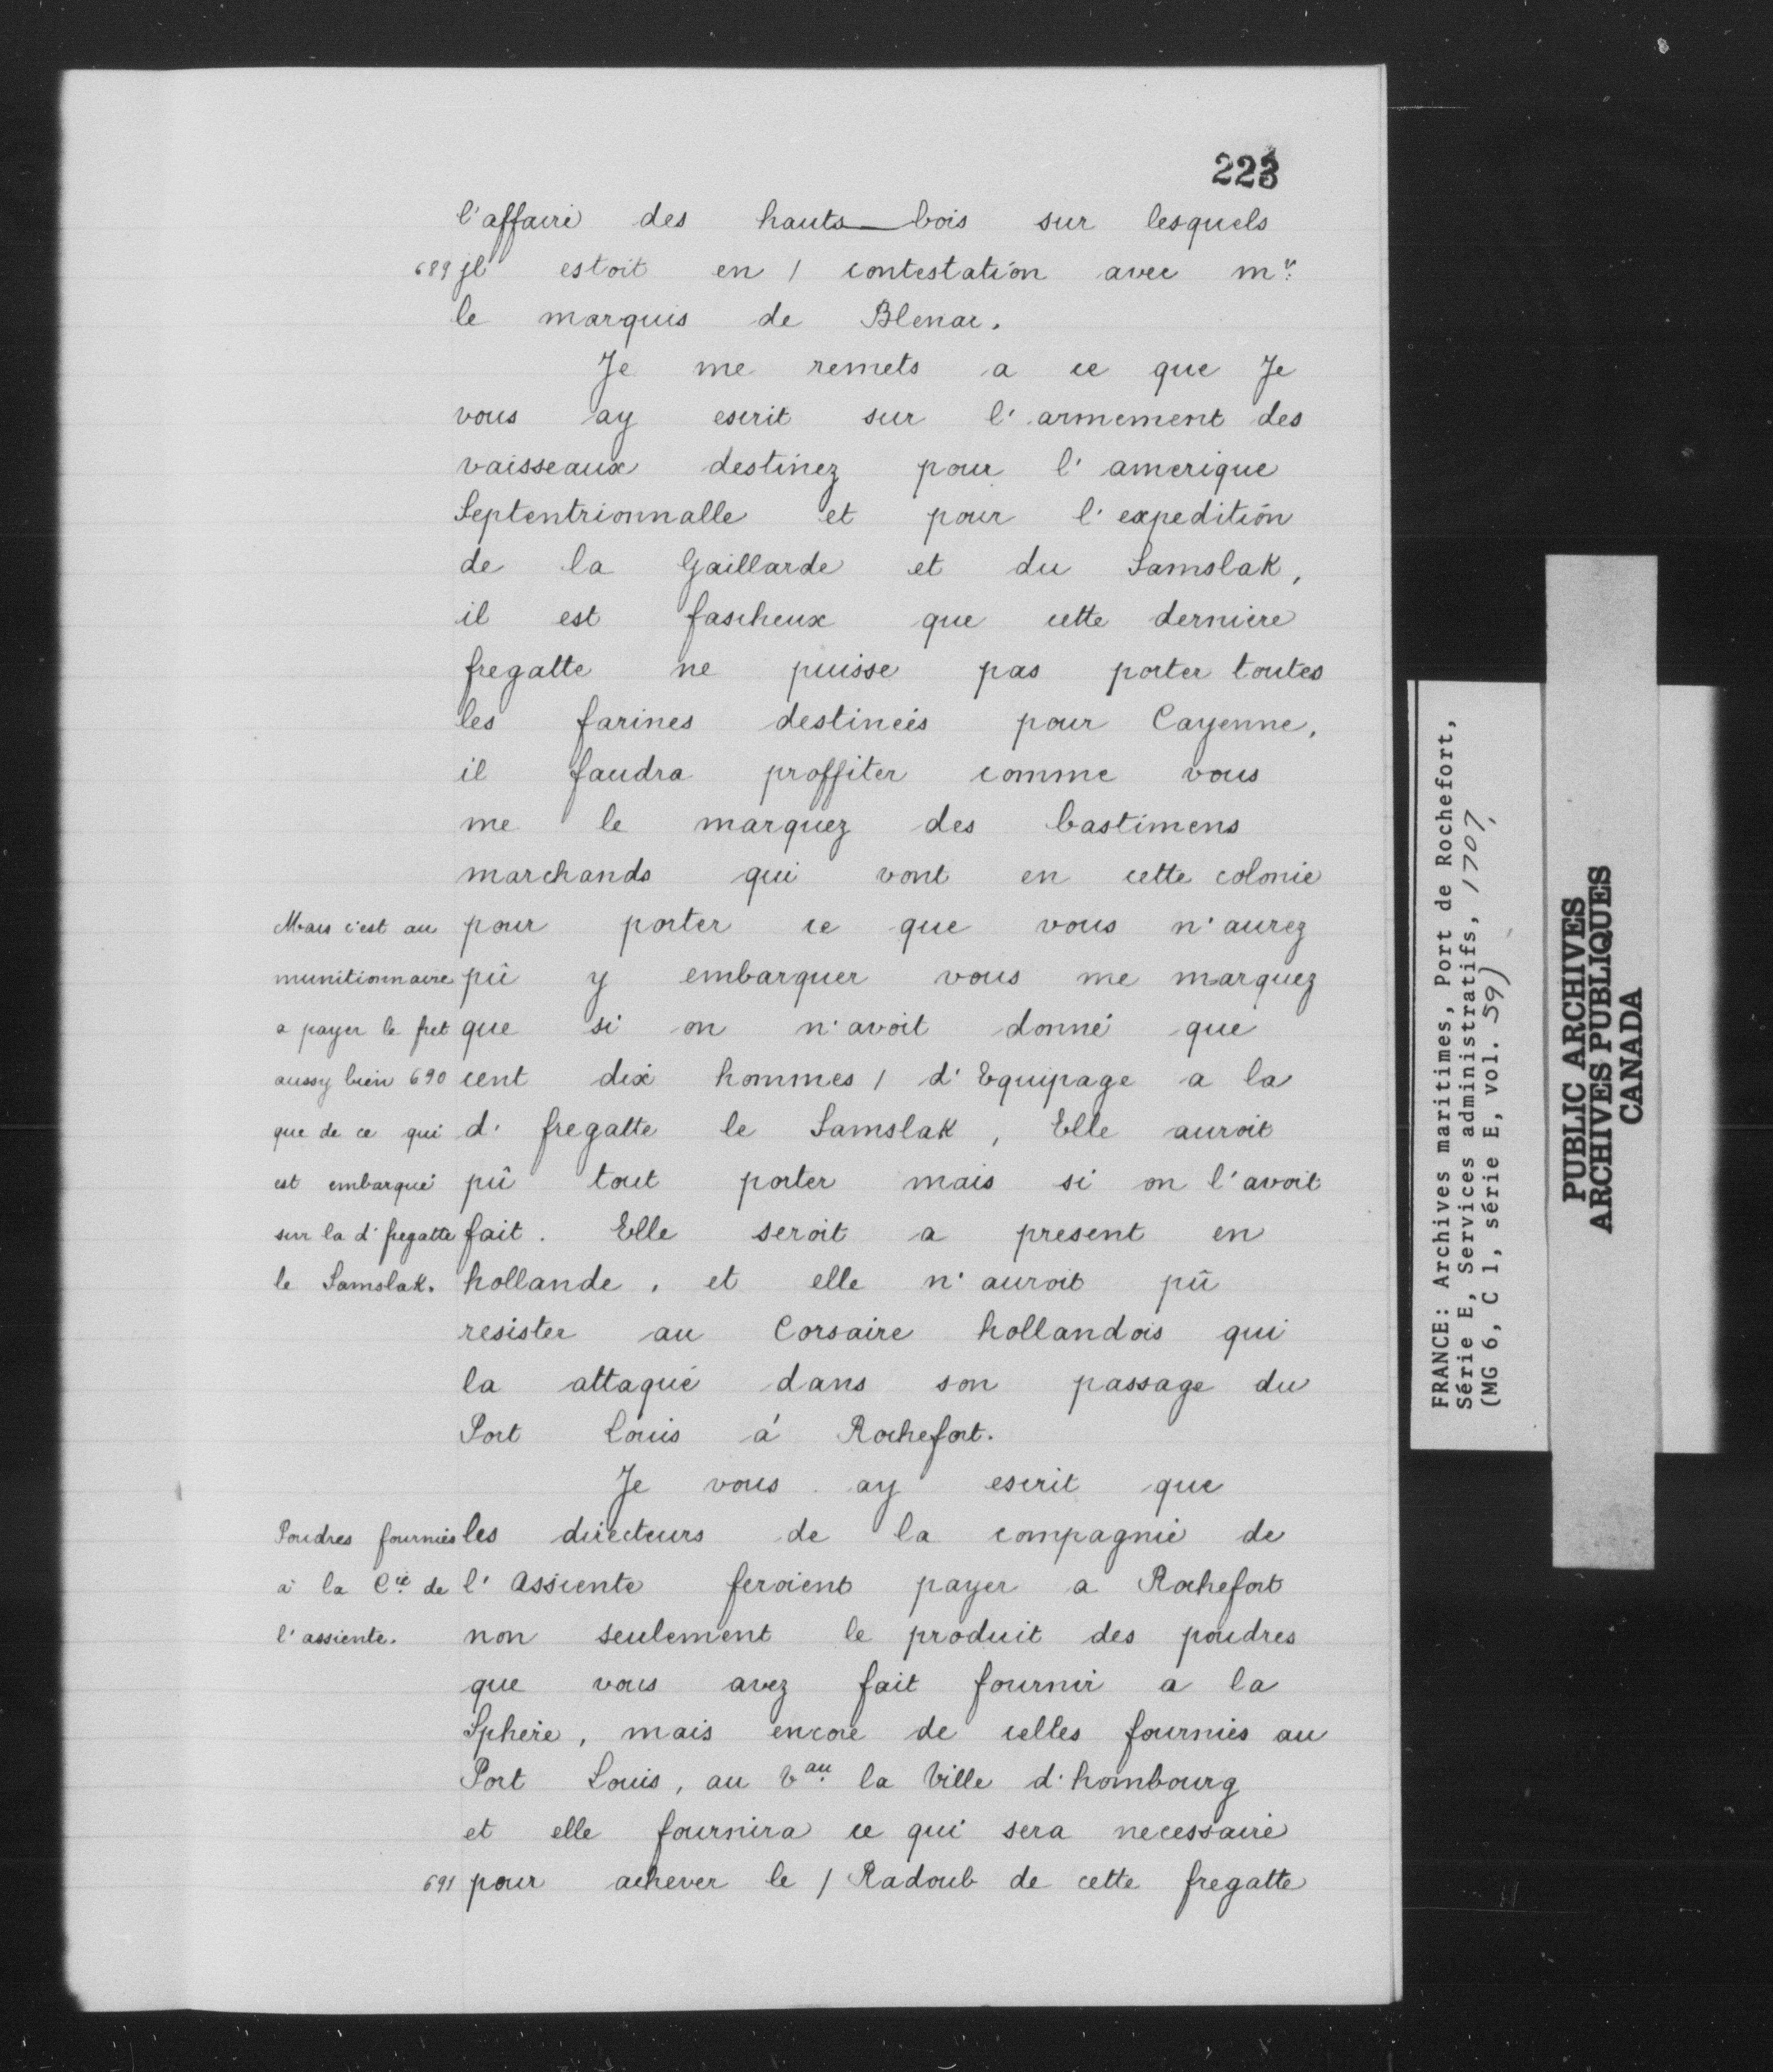 223
l'affaire des hauts-bois sur lesquels
689 jl estoit en / contestation avec mr.
le marquis de Blenac.
Je me remets a ce que Je
vous ay escrit sur l'armement des
vaisseaux destinez pour l'amerique
Septentrionnalle et pour l'expedition
de la Gaillarde et du Samslak,
il est fascheux que cette derniere
fregatte ne puisse pas porter toutes
les farines destinées pour Cayenne,
il faudra proffiter comme vous
me le marquez des bastimens
marchands qui vont en cette colonie
pour porter ce que vous n'aurez
pû y embarquer vous me marquez
que si on n'avoit donné que
cent dix hommes / d'Equipage a la
d. fregatte le Samslak, Elle auroit
pû tout porter mais si on l'avoit
fait. Elle seroit a present en
hollande, et elle n'auroit pû
resister au Corsaire hollandois qui
la attaqué dans son passage du
Port Louis à Rochefort.
Mais c'est au
munitionnaire
a payer le fret
aussy bien 690
que de ce qui
est embarqué
sur la d. fregatte
le Samslak.
Je vous ay escrit que
les directeurs de la compagnie de
l'Assiente feroient payer a Rochefort
non seulement le produit des poudres
que vous avez fait fournir a la
Sphere, mais encore de celles fournies au
Port Louis, au Vau. la Ville d'hombourg
et elle fournira ce qui sera necessaire
691 pour achever le / Radoub de cette fregatte
Poudres fournies
à la Cie. de
l'assiente.
FRANCE: Archives maritimes, Port de Rochefort,
Série E, Services administratifs, 1707,
(MG 6, C 1, série E, vol. 59)
PUBLIC ARCHIVES
ARCHIVES PUBLIQUES
CANADA